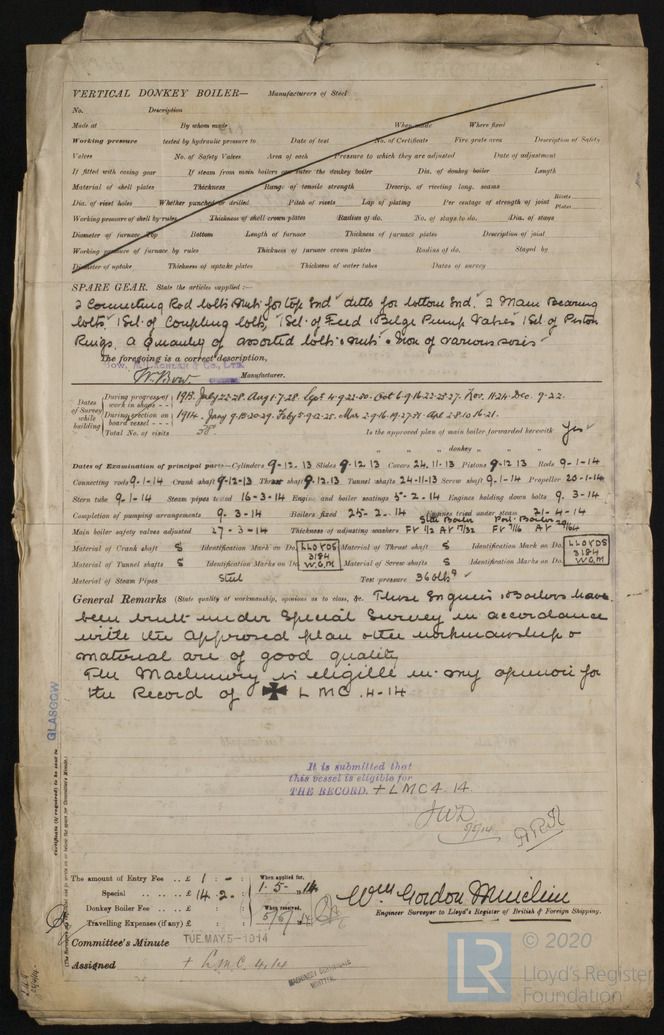 VERTICAL DONKEY BOILER— Manufacturers of Steel
No. Description
Made at By whom made When made Where fixed
Working pressure tested by hydraulic pressure to Date of test No. of Certificate Fire grate area Description of Safety
Valves No. of Safety Valves Area of each Pressure to which they are adjusted Date of adjustment
If fitted with easing gear If steam from main boilers can enter the donkey boiler Dia. of donkey boiler Length
Material of shell plates Thickness Range of tensile strength Descrip. of riveting long. seams
Dia. of rivet holes Whether punched or drilled Pitch of rivets Lap of plating Per centage of strength of joint Rivets Plates
Working pressure of shell by rules Thickness of shell crown plates Radius of do. No. of stays to do. Dia. of stays
Diameter of furnace Top Bottom Length of furnace Thickness of furnace plates Description of joint
Working pressure of furnace by rules Thickness of furnace crown plates Radius of do. Stayed by
Diameter of uptake Thickness of uptake plates Thickness of water tubes Dates of survey
SPARE GEAR. State the articles supplied:—
2 Connecting Rod bolts & nuts for top End ditto for bottom End. 2 Main Bearing
bolts, 1 Set of Coupling bolts, 1 Set of Feed & Bilge Pump Valves 1 Set of Piston
Rings. A quantity of assorted bolts & nuts & Iron of various sizes
The foregoing is a correct description,
BOW, McLACHLAN & CO., LTD.
W. Bow. Manufacturer.
Dates of Survey while building
During progress of work in shops - - 1913. July 22.28. Aug 1.7.28. Sept 4.9.22.30. Oct 6.9.16.22.25.27. Nov. 11.24. Dec. 9.22.
During erection on board vessel - - - 1914. Jany 9.15.20.29. Feby 5.9.12.25. Mar 2.9.16.19.27.31. Apl 2.8.10.16.21.
Total No. of visits 38 Is the approved plan of main boiler forwarded herewith Yes
" " " donkey " "
Dates of Examination of principal parts—Cylinders 9-12.13 Slides 9.12.13 Covers 24.11-13 Pistons 9-12.13 Rods 9-1-14
Connecting rods 9-1-14 Crank shaft 9-12-13 Thrust shaft 9.12.13 Tunnel shafts 24-11-13 Screw shaft 9-1-14 Propeller 20-1-14
Stern tube 9-1-14 Steam pipes tested 16-3-14 Engine and boiler seatings 5-2-14 Engines holding down bolts 9.3-14
Completion of pumping arrangements 9.3-14 Boilers fixed 25-2-14 Engines tried under steam 21-4-14
Main boiler safety valves adjusted 27-3-14 Thickness of adjusting washers
Material of Crank shaft S Identification Mark on Do. LLOYDS 3184 W.G.M Material of Thrust shaft S Identification Mark on Do. LLOYDS 3184 W.G.M
Material of Tunnel shafts S Identification Marks on Do. Material of Screw shafts S Identification Marks on Do.
Material of Steam Pipes Steel Test pressure 360 lbs
General Remarks (State quality of workmanship, opinions as to class, &c. These Engines & Boilers have
been built under Special Survey in accordance
with the approved plan & the workmanship &
material are of good quality
The Machinery is eligible in my opinion for
the Record of ✠ L M C. 4-14
It is submitted that
this vessel is eligible for
THE RECORD. + LMC 4.14.
JWD
5/5/14
The amount of Entry Fee .. £ 1 : - : When applied for,
Special .. .. .. £ 14.2. : 1.5-1914
Donkey Boiler Fee .. .. £ : : When received,
Travelling Expenses (if any) £ : :
Wm Gordon
Engineer Surveyor to Lloyd's Register of British & Foreign Shipping.
Committee's Minute TUE. MAY. 5-1914
Assigned + L.M.C. 4.14
MACHINERY CERTIFICATE WRITTEN.
GLASGOW
Certificate (if required) to be sent to
© 2020
Lloyd's Register
Foundation